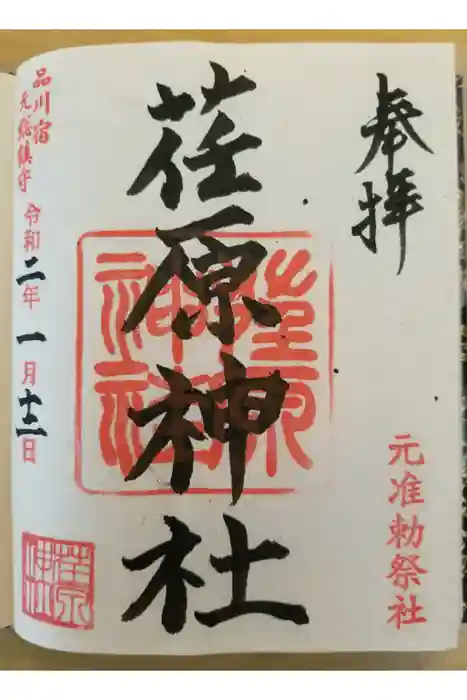 奉拝
元准勅祭社
荏原神社
荏原神社
品川宿
元総鎮守
令和二年一月十二日